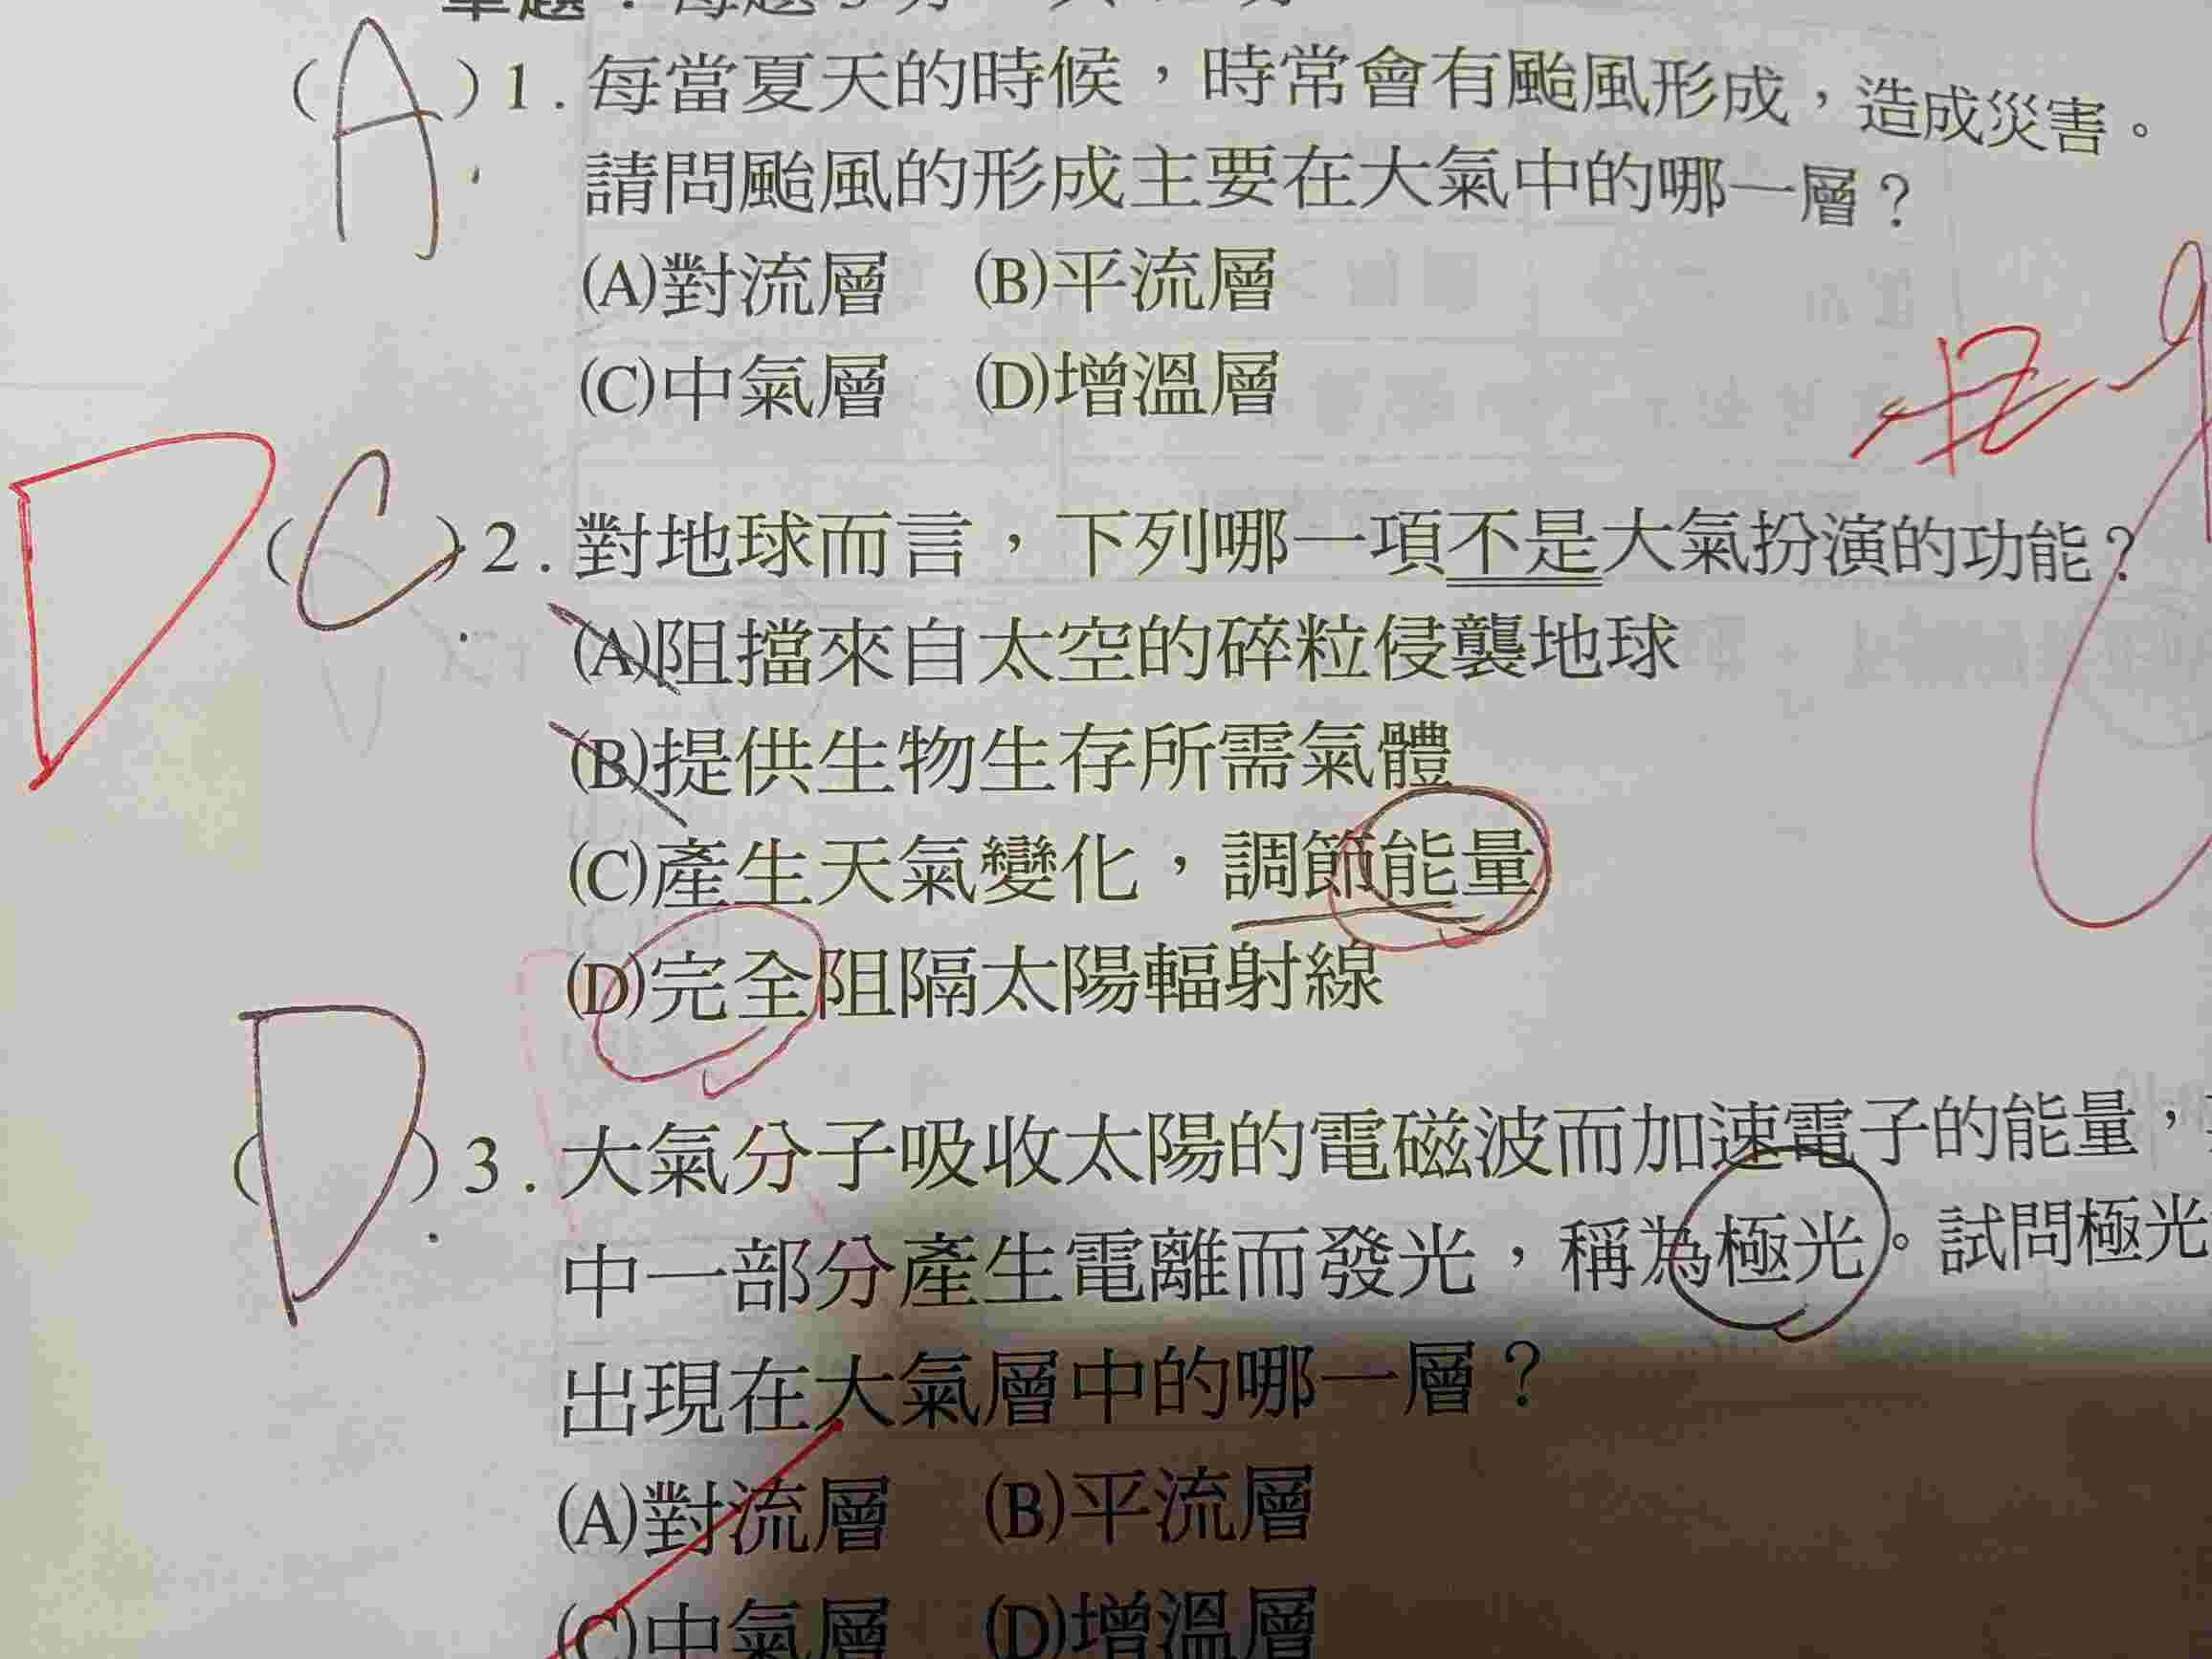 (A)1.每當夏天的時候，時常會有颱風形成，造成災害。
請問颱風的形成主要在大氣中的哪一層？
(A)對流層 (B)平流層
(C)中氣層 (D)增溫層
D (C)2.對地球而言，下列哪一項不是大氣扮演的功能？
(A)阻擋來自太空的碎粒侵襲地球
(B)提供生物生存所需氣體
(C)產生天氣變化，調節能量
(D)完全阻隔太陽輻射線
(D)3.大氣分子吸收太陽的電磁波而加速電子的能量，
中一部分產生電離而發光，稱為極光。試問極光
出現在大氣層中的哪一層？
(A)對流層 (B)平流層
(C)中氣層 (D)增溫層